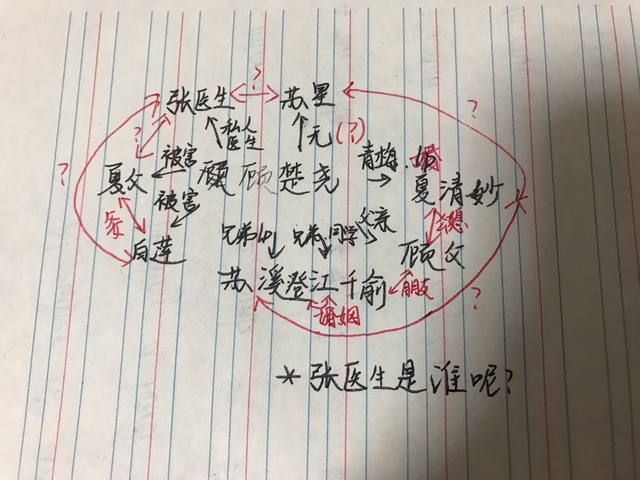 张医生 ? 苏星 ?
? 私人医生 无(?)
夏父 被害 顾楚尧 青梅 婚 夏清妙
? 被害 父亲
白莲 兄弟 兄弟 同学 顾父
苏溪 澄江 千俞 朋友
婚姻 ?
*张医生是谁呢?